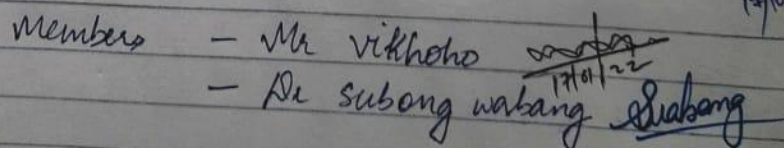 Members - Mr vikhoho
17/01/22
- Dr subong wabang Swabang